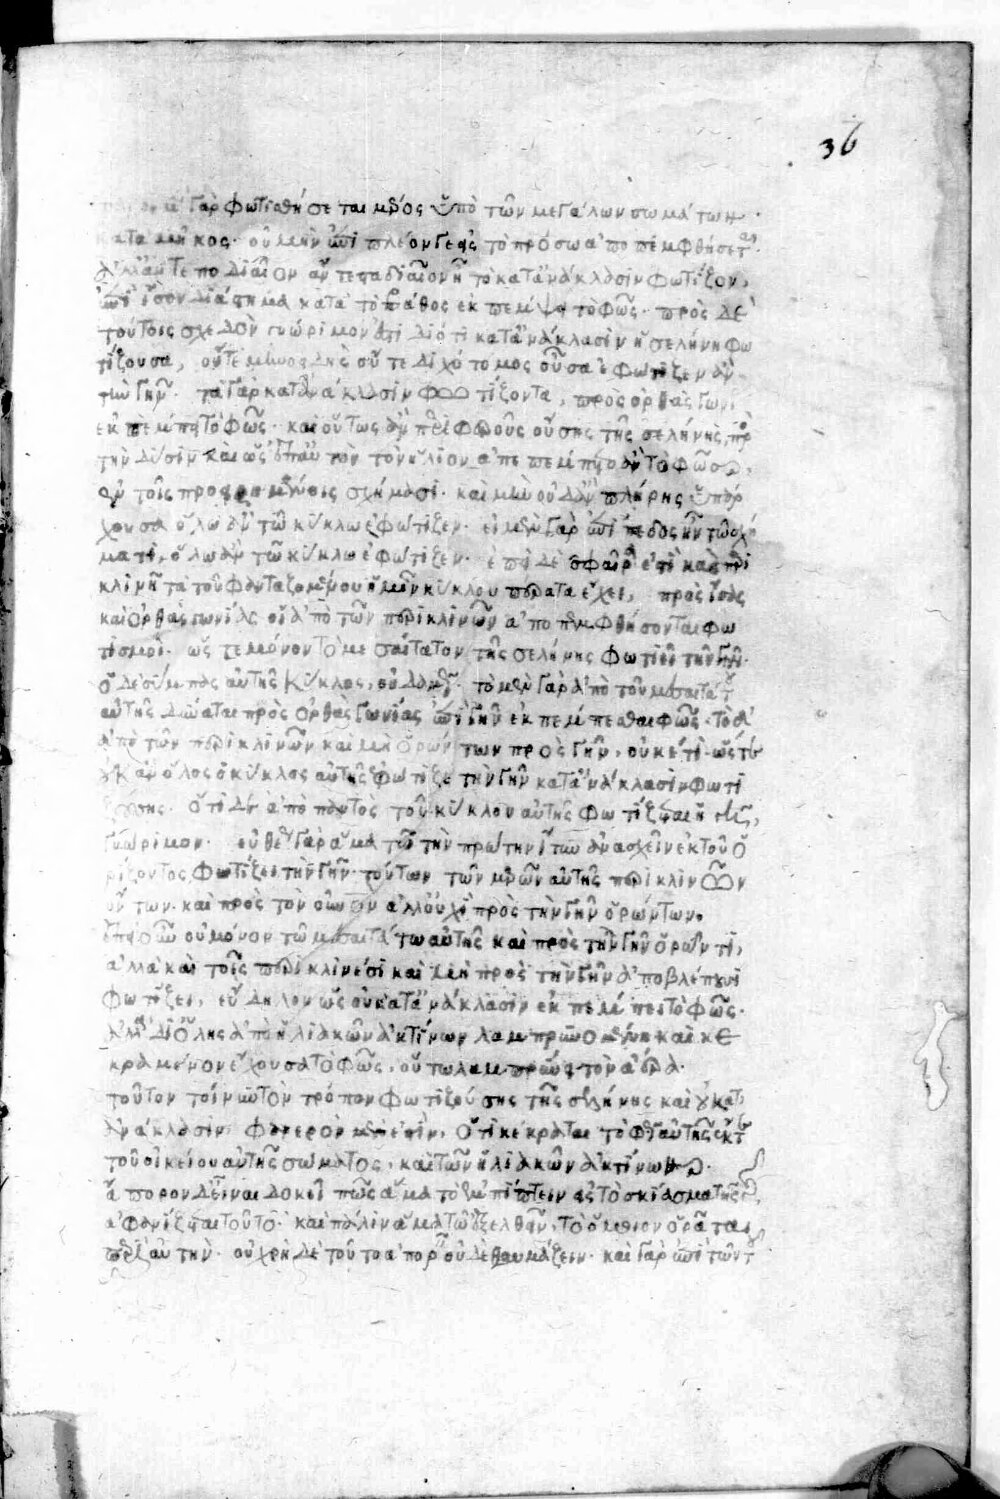 36
γὰρ φωτισθήσεται μέρος ὑπὸ τῶν μεγάλων σωμάτων.
κατὰ μῆκος. οὐ μὴν ἐπὶ πλέον γε εἰς τὸ πρόσω ἀποπεμφθήσεται.
ἀλλ' ἄν τε ποδιαῖον ἄν τε σταδιαῖον ἦ τὸ κατὰ ἀνάκλασιν φωτίζον,
ἐπὶ ἴσον διάστημα κατὰ τὸ βάθος ἐκπέμψει τὸ φῶς. πρὸς δὲ
τούτοις σχεδὸν γνώριμον ὅτι διότι κατὰ ἀνάκλασιν ἡ σελήνη φω
τίζουσα, οὔτε μηνοειδὴς οὔτε διχότομος οὖσα ἐφώτιζεν ἂν
τὴν γῆν. τὰ γὰρ κατὰ ἀνάκλασιν φωτίζοντα, πρὸς ὀρθὰς γωνί
ἐκπέμπει τὸ φῶς. καὶ οὕτως ἂν περιφεροῦς οὔσης τῆς σελήνης, πρὸ
τὴν δύσιν καὶ ὡς ἐπ' αὐτὸν τὸν ἥλιον ἀπεπέμπετο ἂν τὸ φῶς,
ἐν τοῖς προειρημένοις σχήμασι. καὶ μὴν οὐδ' ἂν πλήρης ὑπάρ
χουσα ὅλῳ ἂν τῷ κύκλῳ ἐφώτιζεν. εἰ μὲν γὰρ ἐπίπεδος ἦν τῷ σχή
ματι, ὅλῳ ἂν τῷ κύκλῳ ἐφώτιζεν. ἐπεὶ δὲ σφαιρ ἐστὶ καὶ περι
κλινῆ τὰ τοῦ φανταζομένου ἡμῖν κύκλου πέρατα ἔχει, πρὸς ἴσας
καὶ ὀρθὰς γωνίας οἱ ἀπὸ τῶν περικλινῶν ἀποπεμφθήσονται φω
τισμοί. ὥστε μόνον τὸ μεσαίτατον τῆς σελήνης φωτιεῖ τὴν γῆν.
ὁ δὲ σύμπας αὐτῆς κύκλος, οὐδαμῶς. τὸ μὲν γὰρ ἀπὸ τοῦ μεσαιτάτου
αὐτῆς δύναται πρὸς ὀρθὰς γωνίας ἐπὶ γῆν ἐκπέμπεσθαι φῶς. τὸ δ'
ἀπὸ τῶν περικλινῶν καὶ μὴ ὁρώντων πρὸς γῆν, οὐκέτι. ὥστε
οὐκ ἂν ὅλος ὁ κύκλος αὐτῆς ἐφώτιζε τὴν γῆν κατὰ ἀνάκλασιν φωτι
ζούσης. ὅτι δὲ ἀπὸ παντὸς τοῦ κύκλου αὐτῆς φωτίζεται ἡ γῆ,
γνώριμον. εὐθὺς γὰρ ἅμα τῷ τὴν πρώτην ἴτυν ἀνασχεῖν ἐκ τοῦ ὁ
ρίζοντος φωτίζει τὴν γῆν. τούτων τῶν μερῶν αὐτῆς περικλινῶν
ὄντων. καὶ πρὸς τὸν οὐρανὸν ἀλλ' οὐχὶ πρὸς τὴν γῆν ὁρώντων.
ἐπεὶ οὖν οὐ μόνον τῷ μεσαιτάτῳ αὐτῆς καὶ πρὸς τὴν γῆν ὁρῶντι,
ἀλλὰ καὶ τοῖς περικλινέσι καὶ μὴ πρὸς τὴν γῆν ἀποβλέπουσι
φωτίζει, εὔδηλον ὡς οὐ κατὰ ἀνάκλασιν ἐκπέμπει τὸ φῶς.
ἀλλὰ δι' ὅλης ἀπὸ ἡλιακῶν ἀκτίνων λαμπρυνομένη καὶ κε
κραμένον ἔχουσα τὸ φῶς, οὕτω λαμπρύνει τὸν ἀέρα.
τοῦτον τοίνυν τὸν τρόπον φωτιζούσης τῆς σελήνης καὶ οὐ κατ'
ἀνάκλασιν, φανερόν ἐστιν, ὅτι κέκραται τὸ φῶς αὐτῆς ἐκ τε
τοῦ οἰκείου αὐτῆς σώματος, καὶ τῶν ἡλιακῶν ἀκτίνων.
ἄπορον δὲ εἶναι δοκεῖ πῶς ἅμα τὸ ἐμπίπτειν εἰς τὸ σκίασμα τῆς γῆς,
ἀφανίζεται τοῦτο. καὶ πάλιν ἅμα τῷ ἐξελθεῖν, τὸ ὅμοιον ὁρᾶται
περὶ αὐτήν. οὐ χρὴ δὲ τοῦτο ἀπορεῖν οὐδὲ θαυμάζειν. καὶ γὰρ ἐπὶ τῶν τ